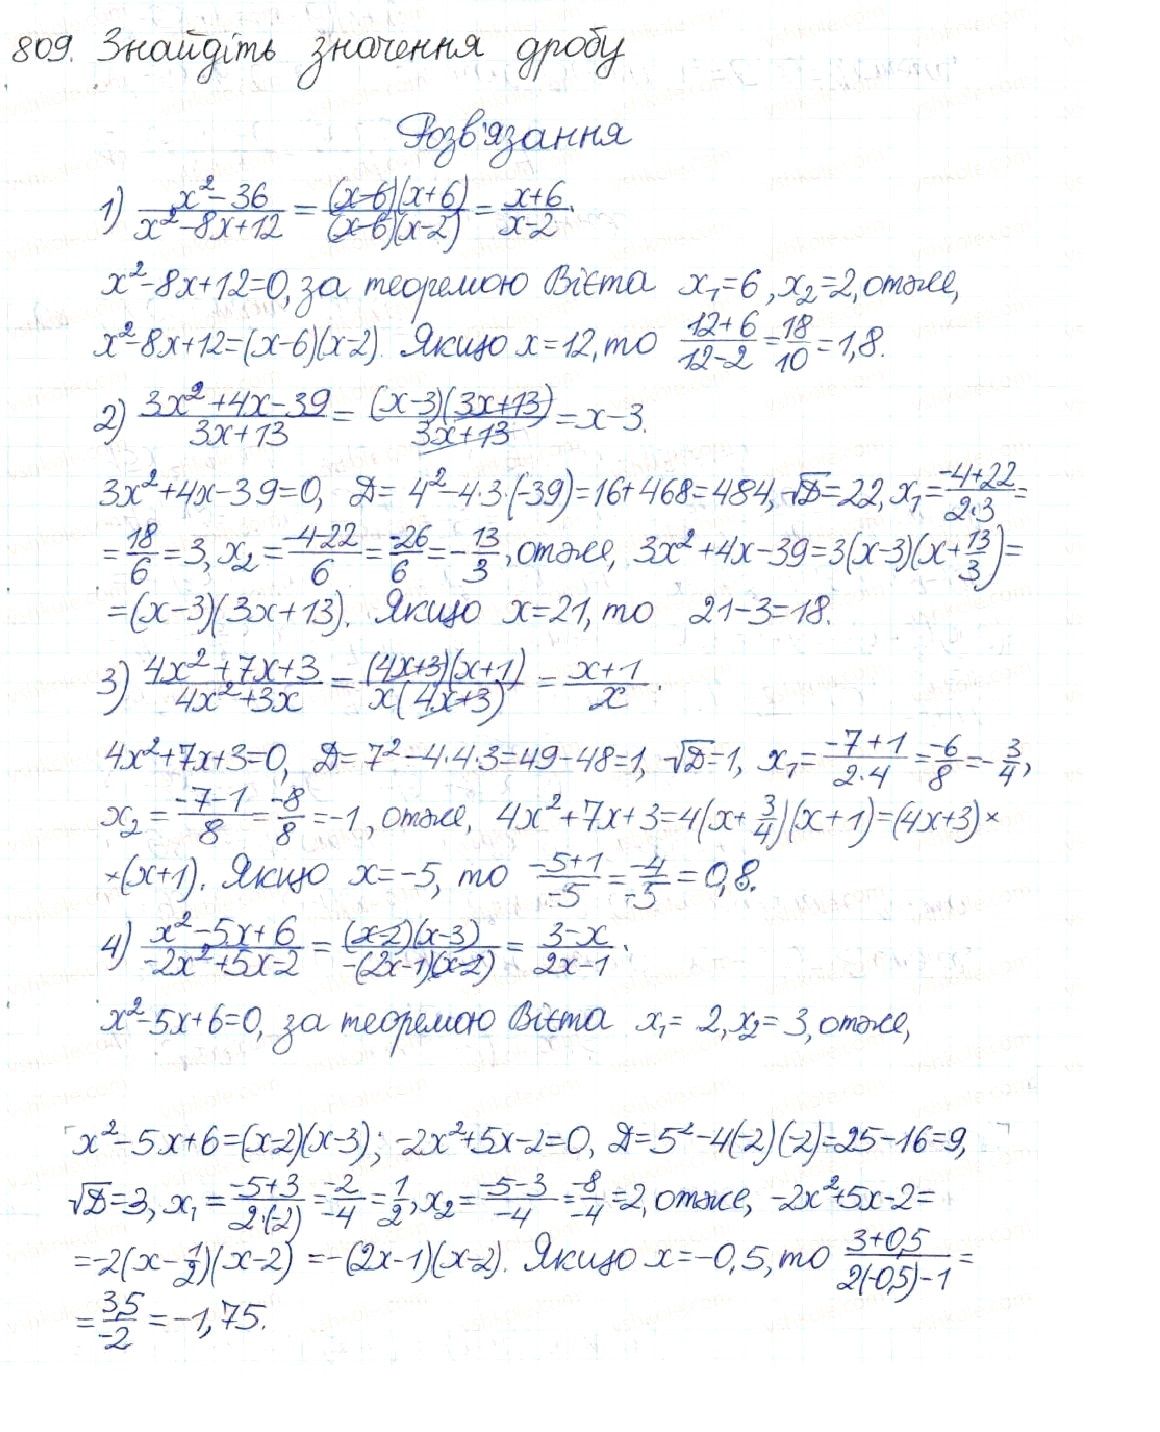 809. Знайдіть значення дробу
Розв'язання
1) (x²-36)/(x²-8x+12) = ((x-6)(x+6))/((x-6)(x-2)) = (x+6)/(x-2).
x²-8x+12=0, за теоремою Вієта x₁=6, x₂=2, отже,
x²-8x+12=(x-6)(x-2). Якщо x=12, то (12+6)/(12-2) = 18/10 = 1,8.
2) (3x²+4x-39)/(3x+13) = ((x-3)(3x+13))/(3x+13) = x-3.
3x²+4x-39=0, D= 4²-4·3·(-39)=16+468=484, √D=22, x₁= (-4+22)/(2·3) =
= 18/6 = 3, x₂ = (-4-22)/6 = -26/6 = -13/3, отже, 3x²+4x-39=3(x-3)(x+13/3)=
=(x-3)(3x+13). Якщо x=21, то 21-3=18.
3) (4x²+7x+3)/(4x²+3x) = ((4x+3)(x+1))/(x(4x+3)) = (x+1)/x.
4x²+7x+3=0, D= 7²-4·4·3=49-48=1, √D=1, x₁= (-7+1)/(2·4) = -6/8 = -3/4,
x₂ = (-7-1)/8 = -8/8 = -1, отже, 4x²+7x+3=4(x+3/4)(x+1)=(4x+3)×
×(x+1). Якщо x=-5, то (-5+1)/-5 = -4/-5 = 0,8.
4) (x²-5x+6)/(-2x²+5x-2) = ((x-2)(x-3))/(-(2x-1)(x-2)) = (3-x)/(2x-1).
x²-5x+6=0, за теоремою Вієта x₁= 2, x₂= 3, отже,
x²-5x+6=(x-2)(x-3); -2x²+5x-2=0, D=5²-4(-2)(-2)=25-16=9,
√D=3, x₁ = (-5+3)/(2·(-2)) = -2/-4 = 1/2, x₂= (-5-3)/-4 = -8/-4 = 2, отже, -2x²+5x-2=
=-2(x-1/2)(x-2) =-(2x-1)(x-2). Якщо x=-0,5, то (3+0,5)/(2(-0,5)-1) =
= 3,5/-2 = -1,75.